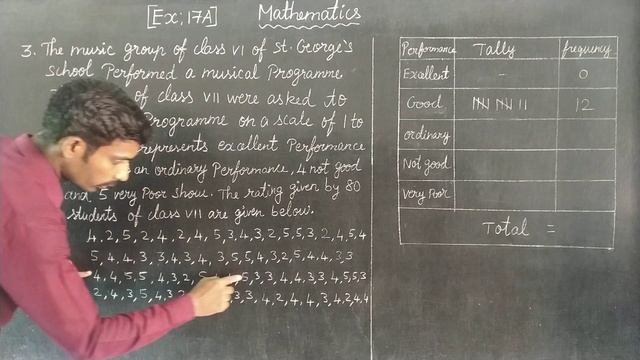 [Ex; 17A] Mathematics
3. The music group of class VI of St. George's
School Performed a musical Programme
of class VII were asked to
Programme on a scale of 1 to
represents excellent Performance
an ordinary Performance, 4 not good
and 5 very Poor Show. The rating given by 80
students of class VII are given below.
4, 2, 5, 2, 4, 2, 4, 5, 3, 4, 3, 2, 5, 5, 3, 2, 4, 5, 4
5, 4, 4, 3, 3, 4, 3, 4, 3, 5, 5, 4, 3, 2, 5, 4, 4, 3, 3
4, 4, 5, 5, 4, 3, 2, 5, 3, 3, 4, 4, 3, 3, 4, 5, 5, 3
2, 4, 3, 5, 4, 3 3, 3, 4, 2, 4, 4, 3, 4, 2, 4, 4
Performance Tally frequency
Exallent - 0
Good 12
ordinary
Not good
Very Poor
Total =